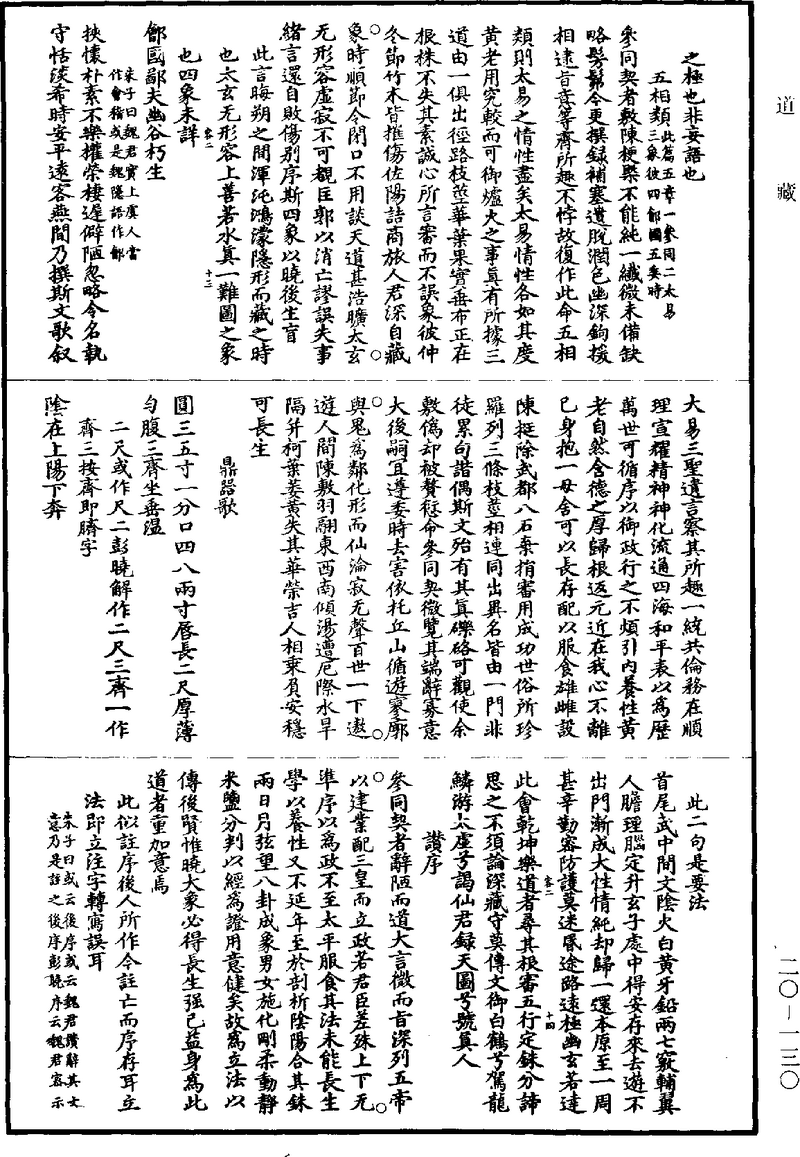 道藏
二〇—一三〇
之極也非妄語也
五相類此篇五章一參同二太易
三象彼四鄶國五委時
參同契者敷陳梗槩不能純一纖微未備缺
略髣髴今更撰録補塞遺脫潤色幽深鉤援
相逮㫖意等齊所趣不悖故復作此命五相
類則太易之情性盡矣太易情性各如其度
黃老用究較而可御爐火之事真有所據三
道由一俱出徑路枝莖華葉果實垂布正在
根株不失其素誠心所言審而不誤象彼仲
冬節竹木皆摧傷佐陽詰商旅人君深自藏
象時順節令閉口不用談天道甚浩曠太玄
无形容虛寂不可覩匡郭以消亡謬誤失事
緒言還自敗傷别序斯四象以曉後生盲
此言晦朔之間渾沌鴻濛隱形而藏之時
也太玄无形容上善若水真一難圖之象
也四象未詳
卷二
十三
鄶國鄙夫幽谷朽生
朱子曰魏君實上虞人當
作會稽或是魏隱語作鄶
挾懷朴素不樂權榮棲遲僻陋忽略令名執
守恬淡希時安平遠客燕間乃撰斯文歌叙
大易三聖遺言察其所趣一統共倫務在順
理宣耀精神神化流通四海和平表以爲歷
萬世可循序以御政行之不煩引内養性黃
老自然含德之厚歸根返元近在我心不離
己身抱一毋舍可以長存配以服食雄雌設
陳挺除武都八石棄捐審用成功世俗所珍
羅列三條枝莖相連同出異名皆由一門非
徒累句諧偶斯文殆有其真礫硌可觀使余
敷僞却被贅愆命參同契微覽其端辭寡意
大後嗣宜遵委時去害依托丘山循遊寥廓
與鬼爲鄰化形而仙淪寂无聲百世一下遨
遊人間陳敷羽翮東西南傾湯遭厄際水旱
隔并柯葉萎黃失其華榮吉人相乘負安穩
可長生
鼎器歌
圓三五寸一分口四八兩寸脣長二尺厚薄
勻腹三齊坐垂温
二尺或作尺二彭曉解作二尺三齊一作
齊三按齊即臍字
陰在上陽下奔
此二句是要法
首尾武中間文陰火白黃牙鉛兩七竅輔翼
人贍理腦定升玄子處中得安存來去遊不
出門漸成大性情純却歸一還本原至一周
甚辛勤密防護莫迷昏途路遠極幽玄若達
卷二
十四
此會乾坤樂道者尋其根審五行定銖分諦
思之不須論深藏守莫傳文御白鶴兮駕龍
鱗游太虛兮謁仙君録天圖兮號真人
讚序
參同契者辭陋而道大言微而㫖深列五帝
以建業配三皇而立政若君臣差殊上下无
準序以爲政不至太平服食其法未能長生
學以養性又不延年至於剖析陰陽合其銖
兩日月弦望八卦成象男女施化剛柔動静
米鹽分判以經爲證用意健矣故爲立法以
傳後賢惟曉大象必得長生强己益身爲此
道者重加意焉
此似註序後人所作今註亡而序存耳立
法即立注字轉寫誤耳
朱子曰或云後序或云魏君讚解其文
意乃是註之後序彭曉序云魏君密示